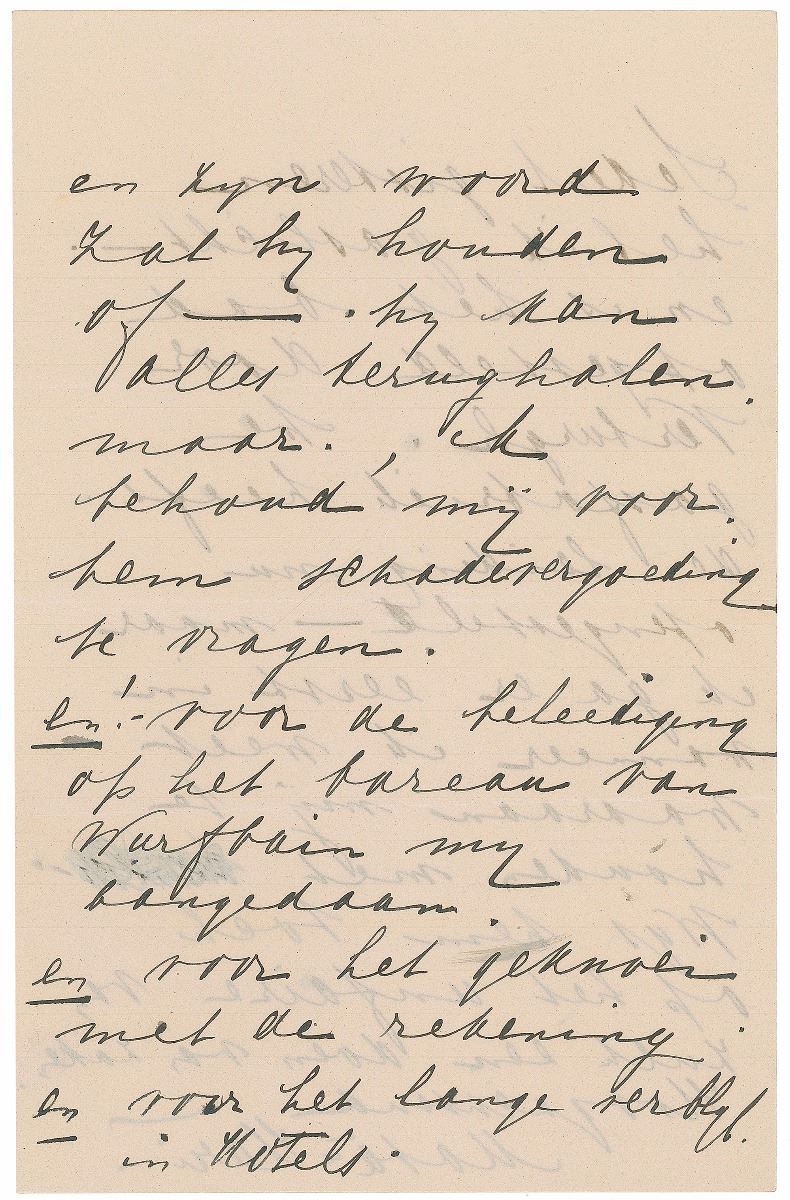 en zyn woord
zal hy houden
of — . hy kan
alles terughalen.
maar. , ik
behoud mij voor.
hem schadevergoeding
te vragen.
en!- voor de beleediging
op het bureau van
Wurfbain my
aangedaan.
en voor het geknoei
met de rekening.
en voor het lange verblyf.
in Hotels.